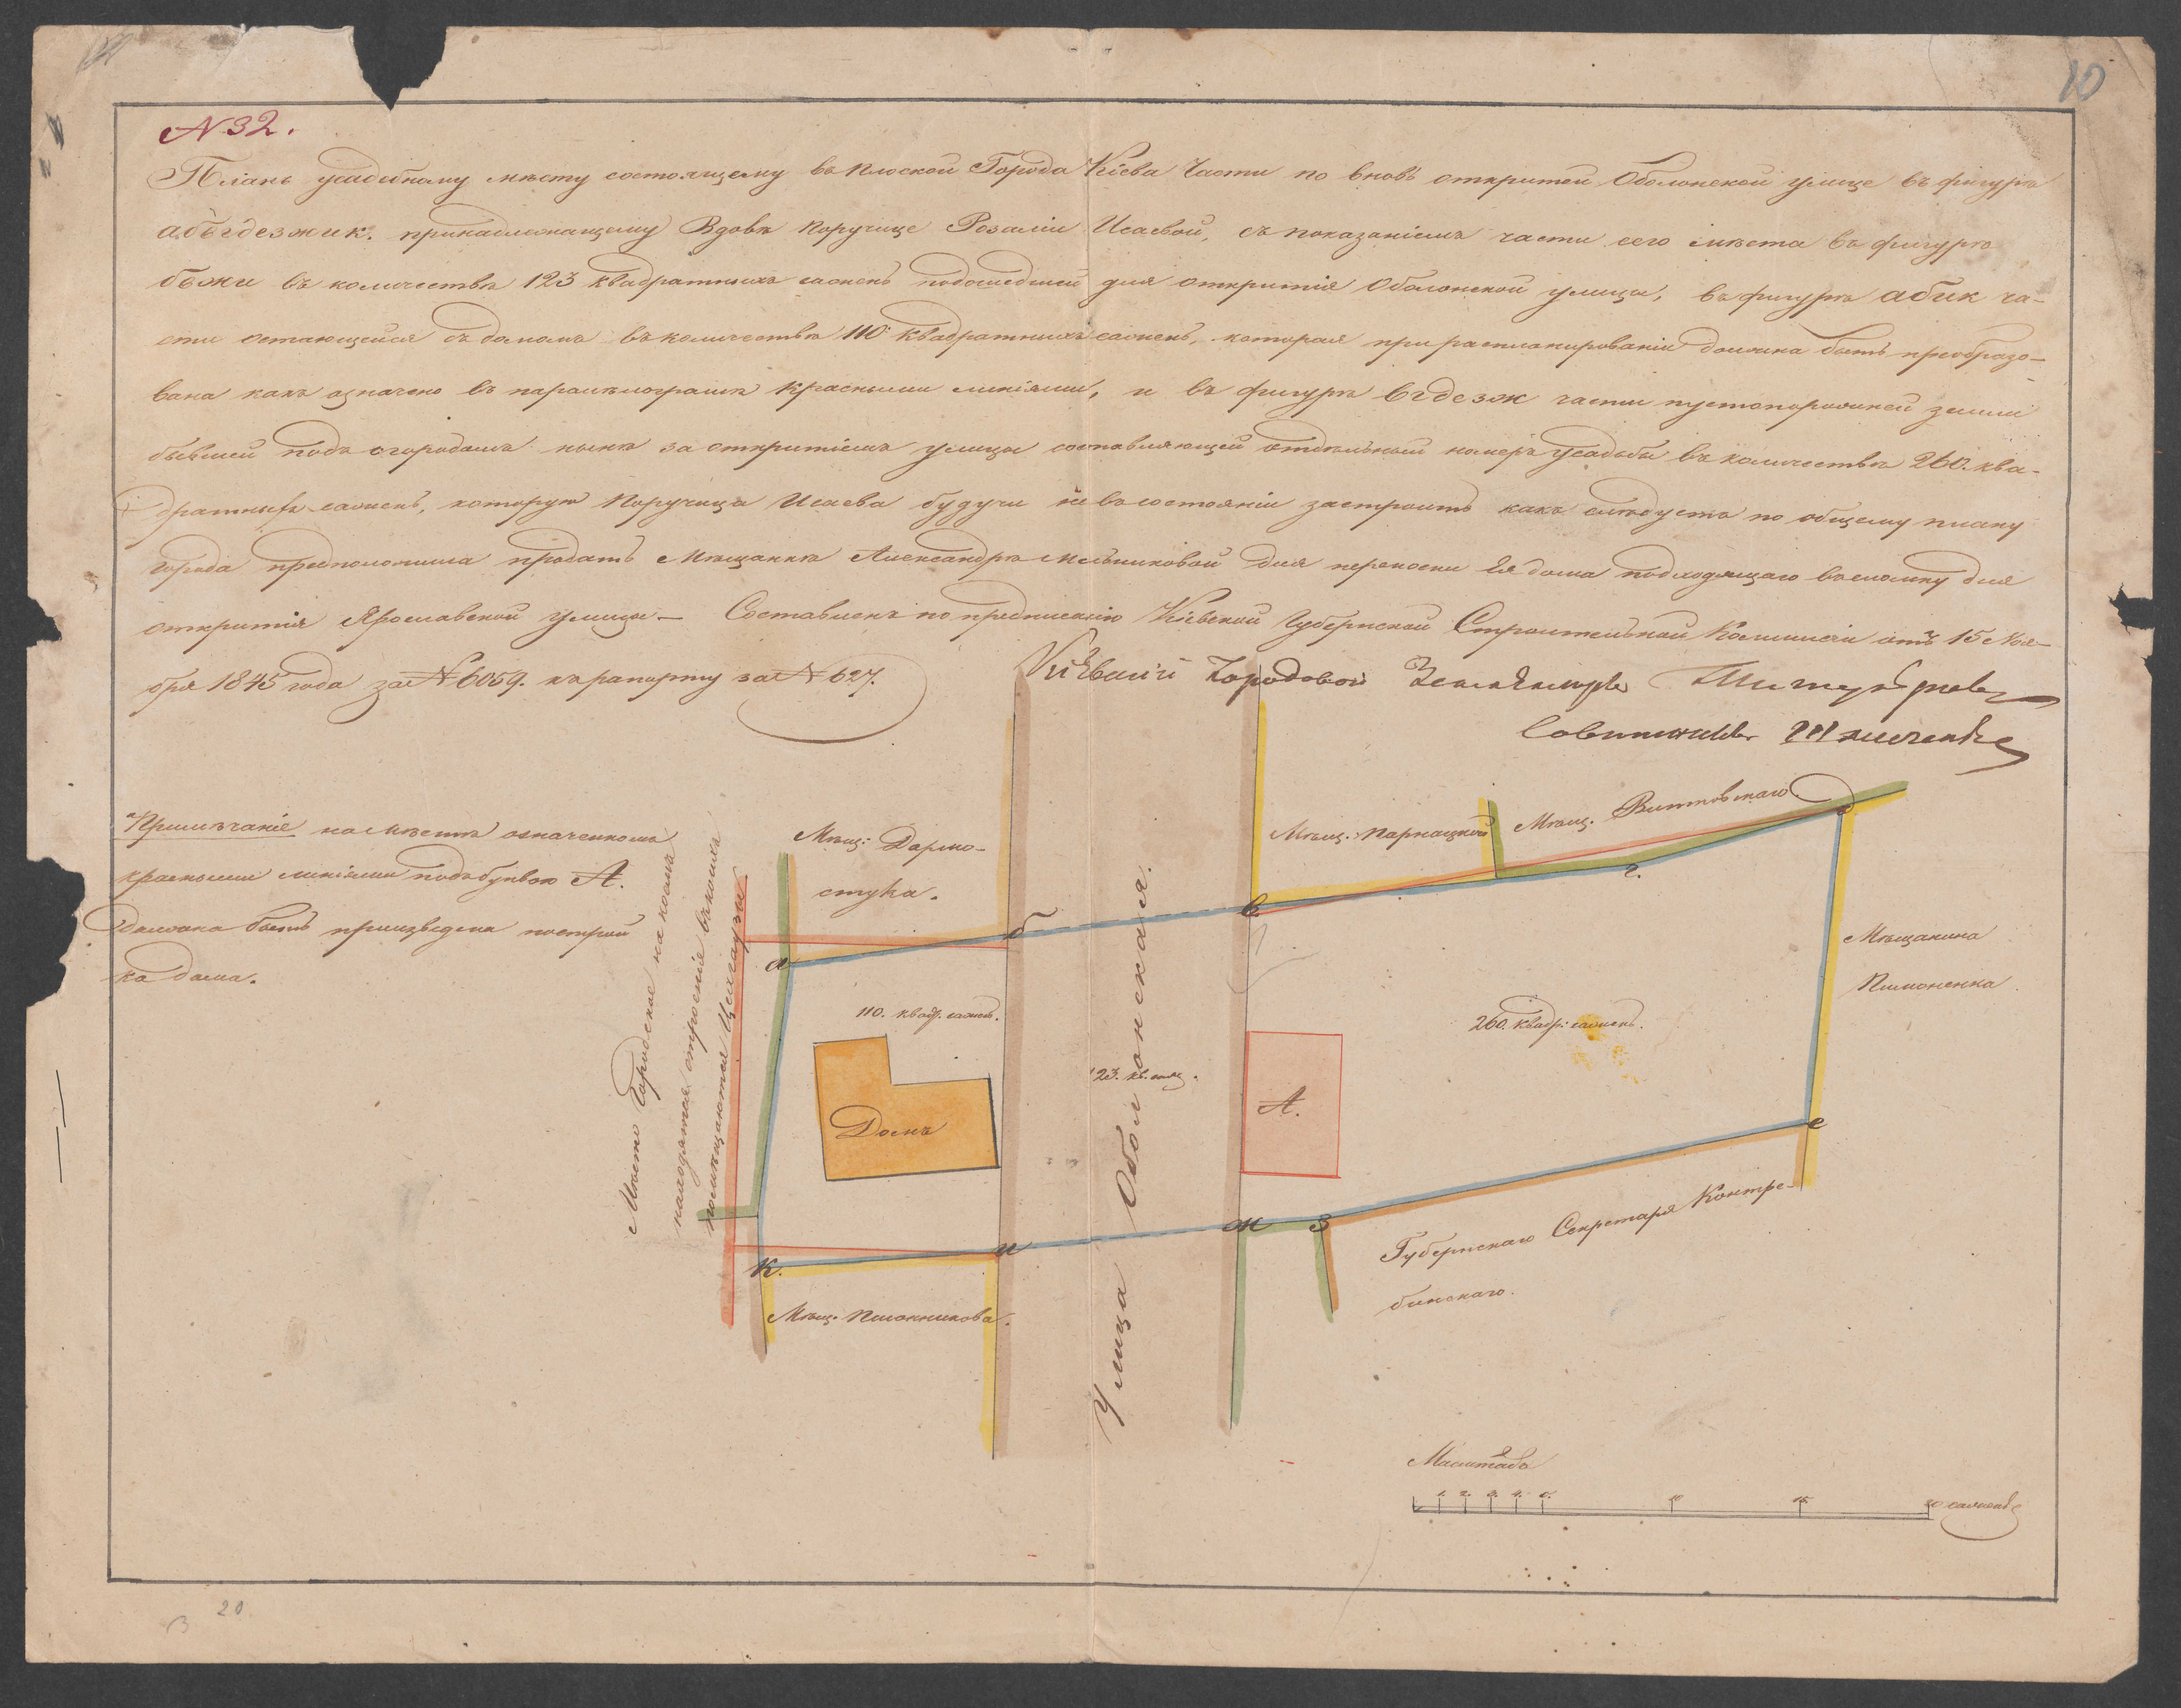 10
N 32.
Планъ усадебному мѣсту состоящему въ Плоской Города Кіева Части по вновь открытой Оболонской улице въ фигурѣ
абвгдезжик. принадлежащему Вдовѣ Поручице Розаліи Исаевой, съ показаніемъ части сего мѣста въ фигурѣ
бвжи въ количествѣ 123 квадратныхъ саженъ подошедшей для открытія Оболонской улицы, въ фигурѣ абик ча-
сти остающейся съ домомъ въ количествѣ 110 квадратныхъ саженъ, которая при распланированіи должна быть преобразо-
вана какъ означено въ паралелограмѣ красными линіями, и въ фигурѣ вгдезж части пустопорожней земли
бывшей подъ огородомъ нынѣ за открытіемъ улицы составляющей отдѣльный номеръ усадьбы въ количествѣ 260. ква-
дратныхъ саженъ, которую Поручица Исаева будучи не въ состояніи застроить какъ слѣдуетъ по общему плану
города предположила продать Мѣщанкѣ Александрѣ Мельниковой для переноски Ея дома подходящаго въ сломку для
открытія Ярославской улицы — Составленъ по предписанію Кіевской Губернской Строительной Комиссіи отъ 15 Ноя-
бря 1845 года за N 6059. къ рапорту за N 627.
Кіевскій Городовой Землемѣръ
Примѣчаніе на мѣстѣ означенномъ
красными линіями подъ буквою А.
должна быть произведена построй
ка дома.
Мѣсто Городское на коемъ
находятся строенія въ коихъ
помѣщаются Цейхгаузы
Мѣщ: Дармо-
стука.
Мѣщ. Парнацкой
Мѣщ. Витковскаго
а
б
в
г.
д
Мѣщанина
Пимоненка
110. квадр. сажен.
260. квадр: сажень.
123. кв. саж.
Домъ
А.
Улица Оболонская.
е
ж
з
и
к.
Губернскаго Секретаря Контре-
бинскаго.
Мѣщ. Пшонникова.
Масштабъ
1. 2. 3. 4. 5. 10 15 20 саженъ
20